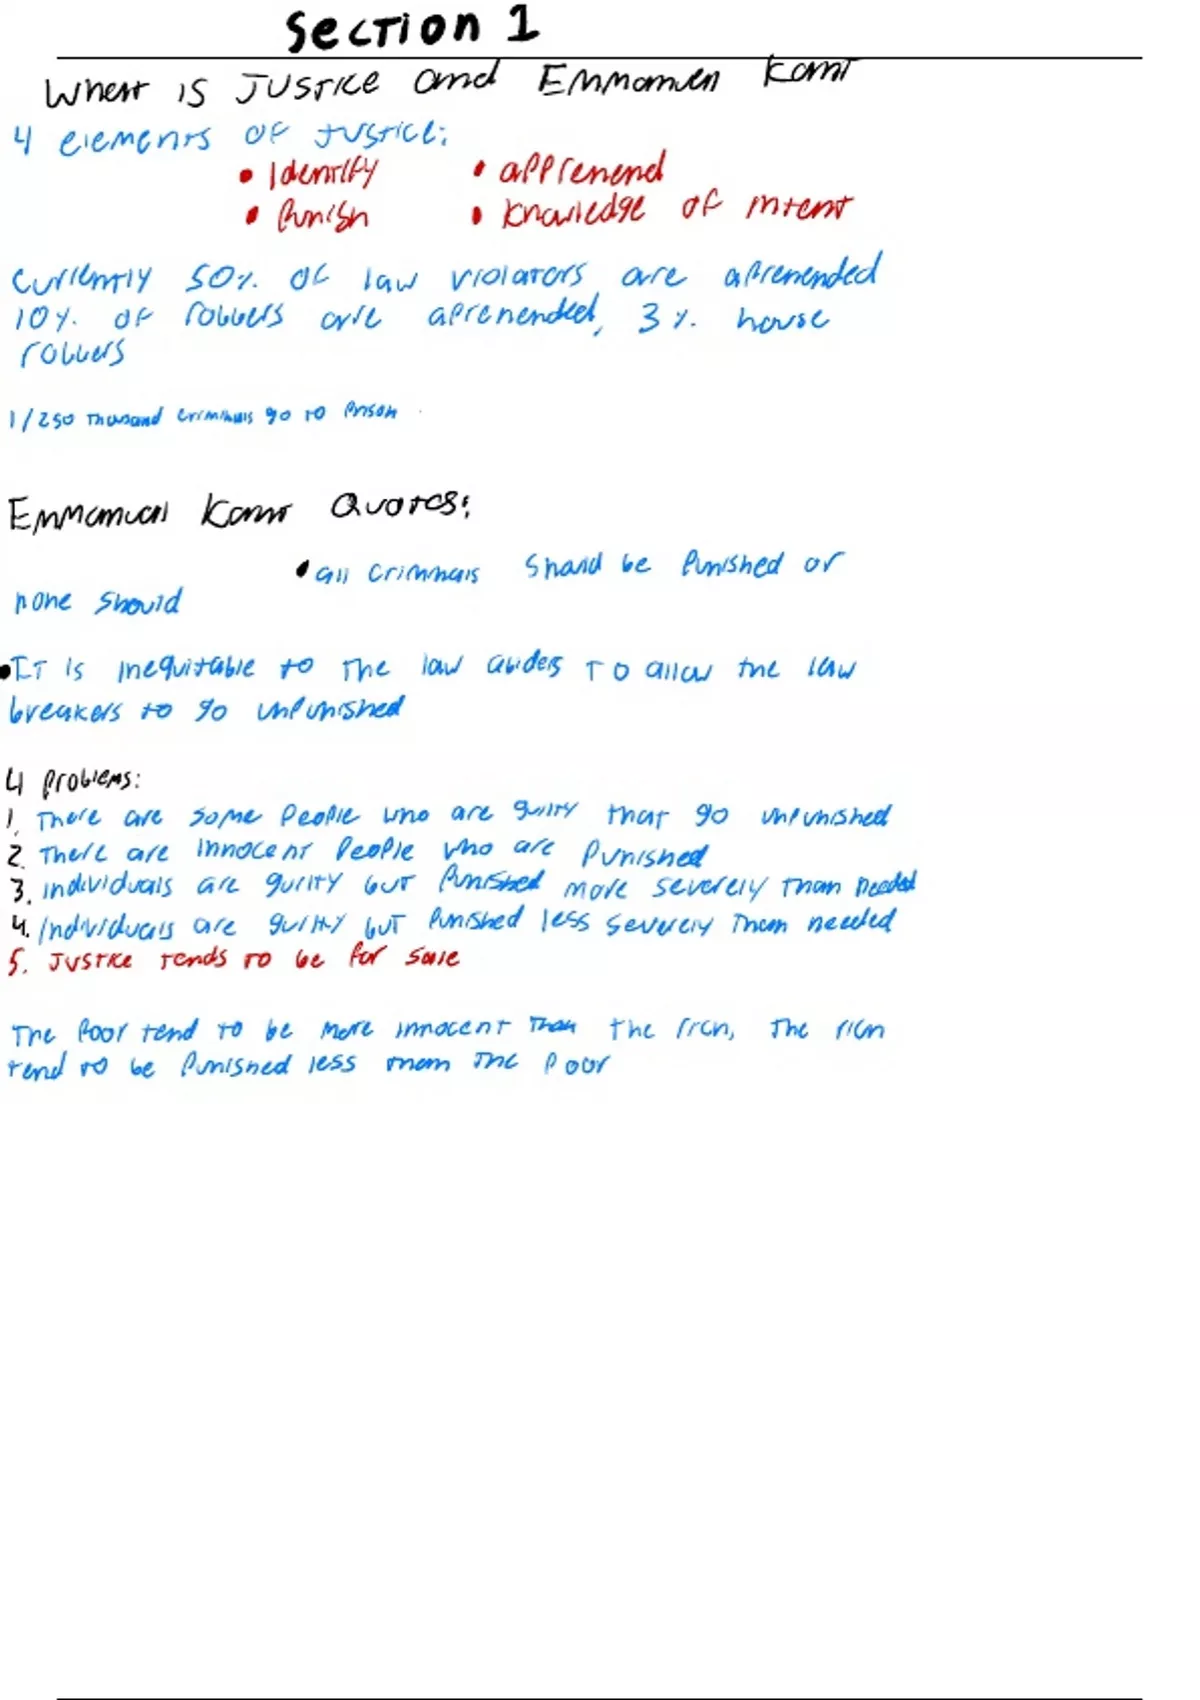 Section 1
What is Justice and Emmanuel Kant
4 elements of Justice:
• Identify • apprehend
• Punish • Knowledge of intent
Currently 50% of law violators are aprehended
10% of robbers are aprehended, 3% house
robbers
1/250 thousand criminals go to prison
Emmanuel Kant Quotes:
• all criminals should be punished or
none should
• It is inequitable to the law abiders to allow the law
breakers to go unpunished
4 problems:
1. There are some people who are guilty that go unpunished
2. There are innocent people who are punished
3. individuals are guilty but punished more severely than needed
4. Individuals are guilty but punished less severely then needed
5. Justice tends to be for sale
The poor tend to be more innocent than the rich, the rich
tend to be punished less then the poor